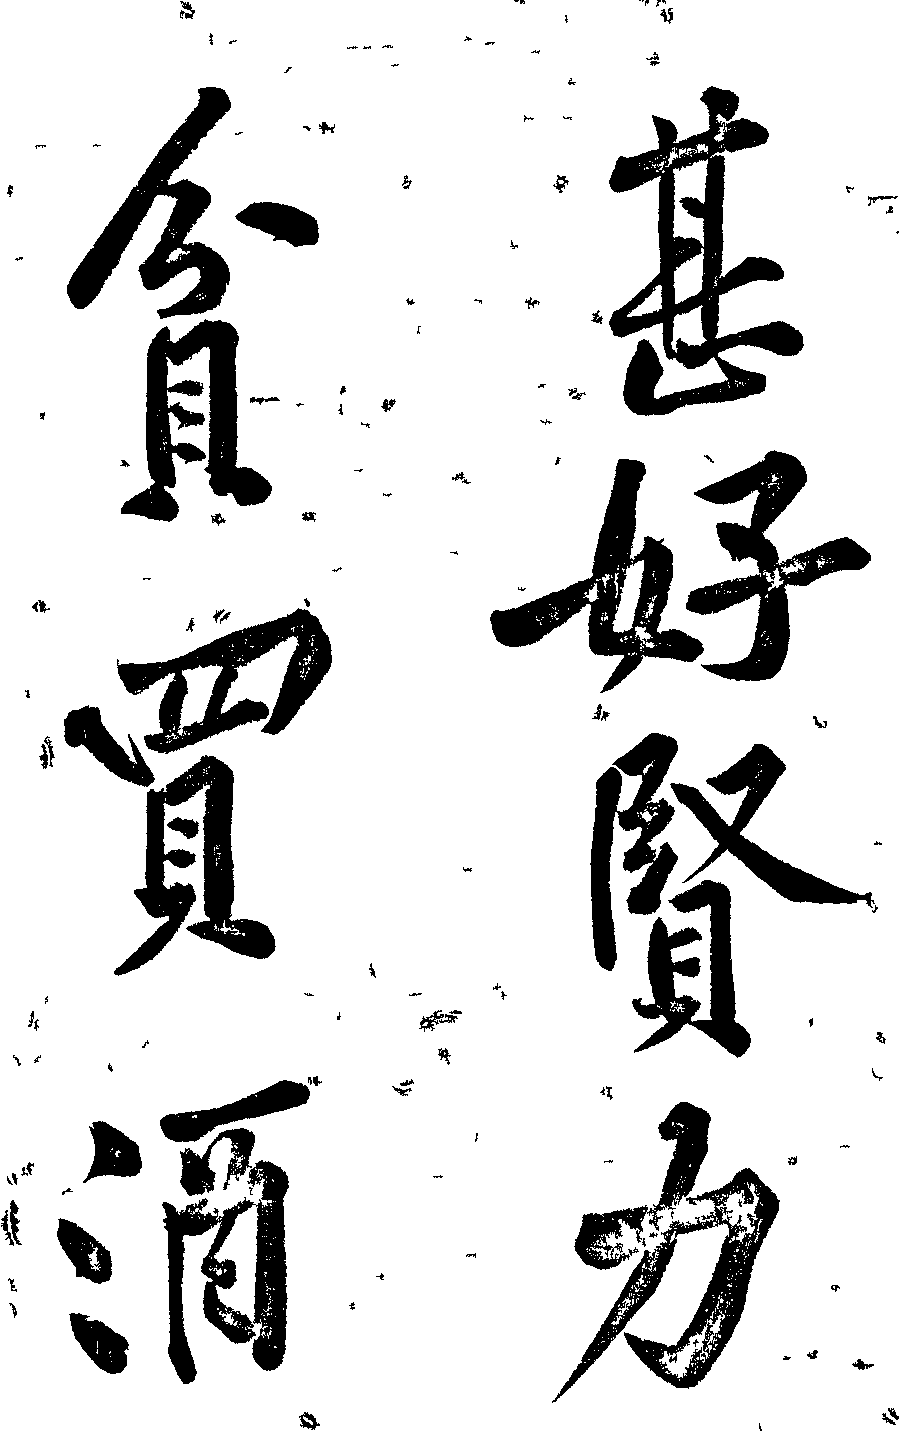 甚好賢力
貧買酒